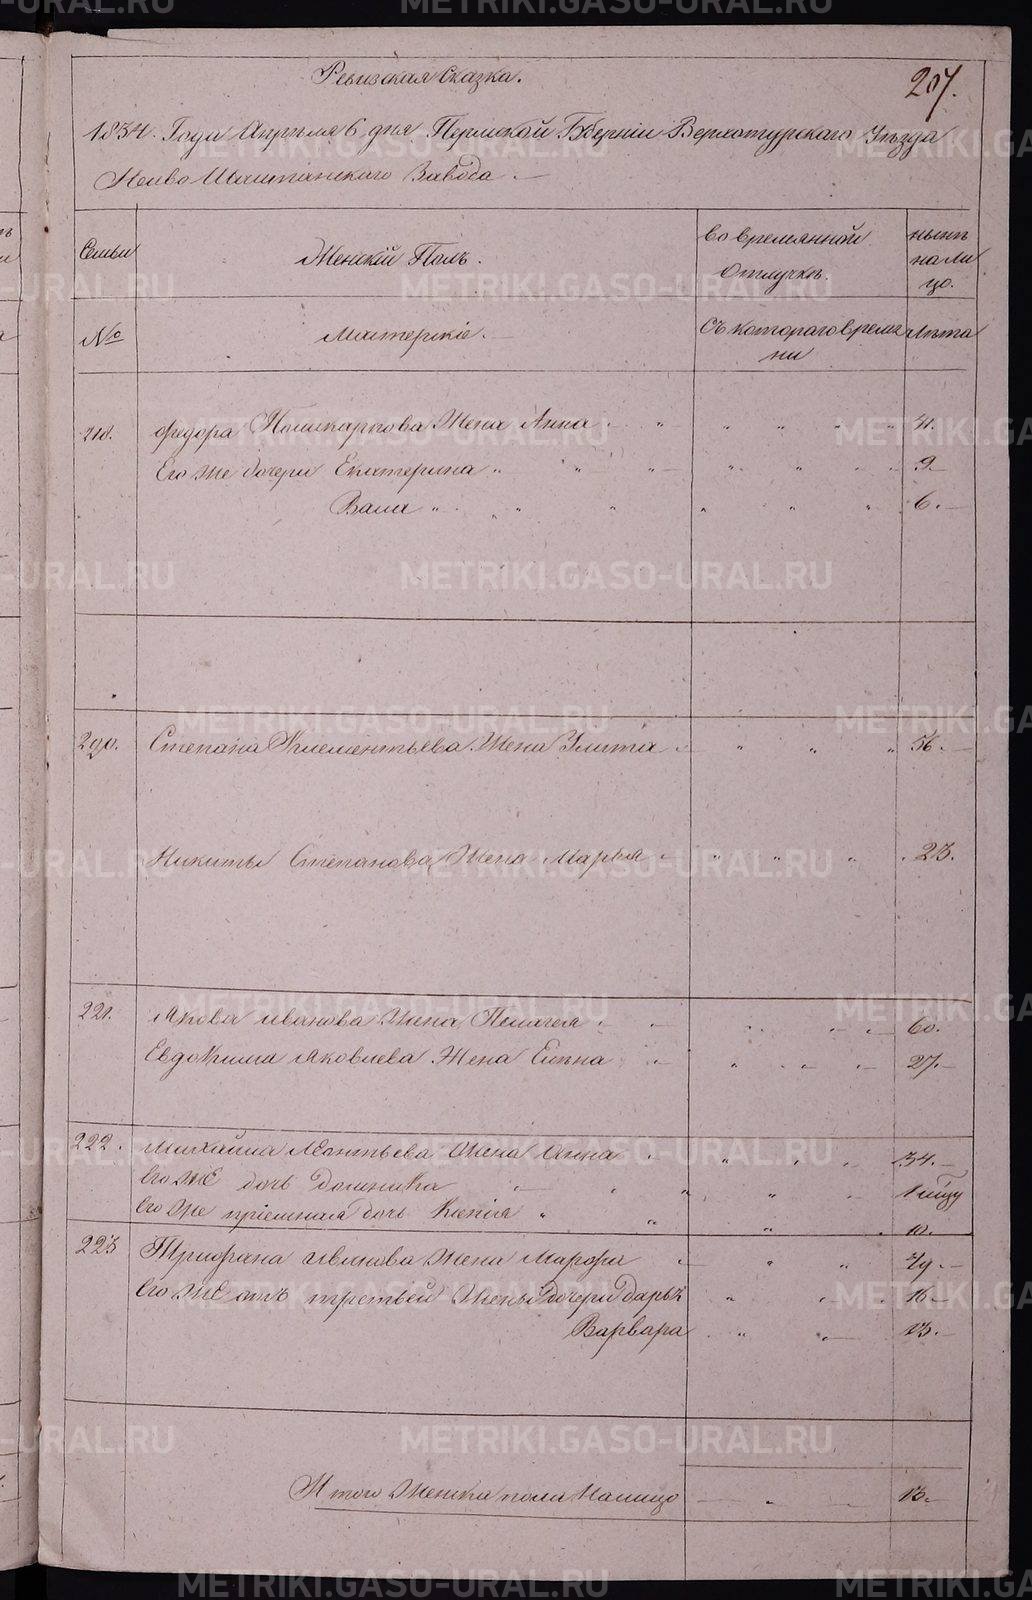 Ревизская Сказка.
207.
1834. Года Апреля 6 дня Пермской Губерніи Верхотурскаго Уѣзда
Нейво Шайтанскаго Завода. —
Семьи
Женскій Полъ.
во времянной
Отлучкѣ.
нынѣ
на ли
цо.
№
Матерскіе.
Съ котораго време
ни
Лѣта
218. Федора Поликарпова Жена Анна 41.
Его же дочери Екатерина 9
6.
220. Степана Клементьева Жена Улита 56.
Никиты Степанова Жена Марья 23.
221. Якова Иванова Жена Пелагея 60.
Евдокима Яковлева Жена Елена 27.
222. Михайла Леонтьева Жена Анна 34.
Его же дочь Домника
Его же пріемная дочь Ксенія 10.
223 Трифана Иванова Жена Марфа 49.
Его же отъ третьей Жены дочери Дарья 16
Варвара 13.
Итого Женска пола Налицо 13.
METRIKI.GASO-URAL.RU